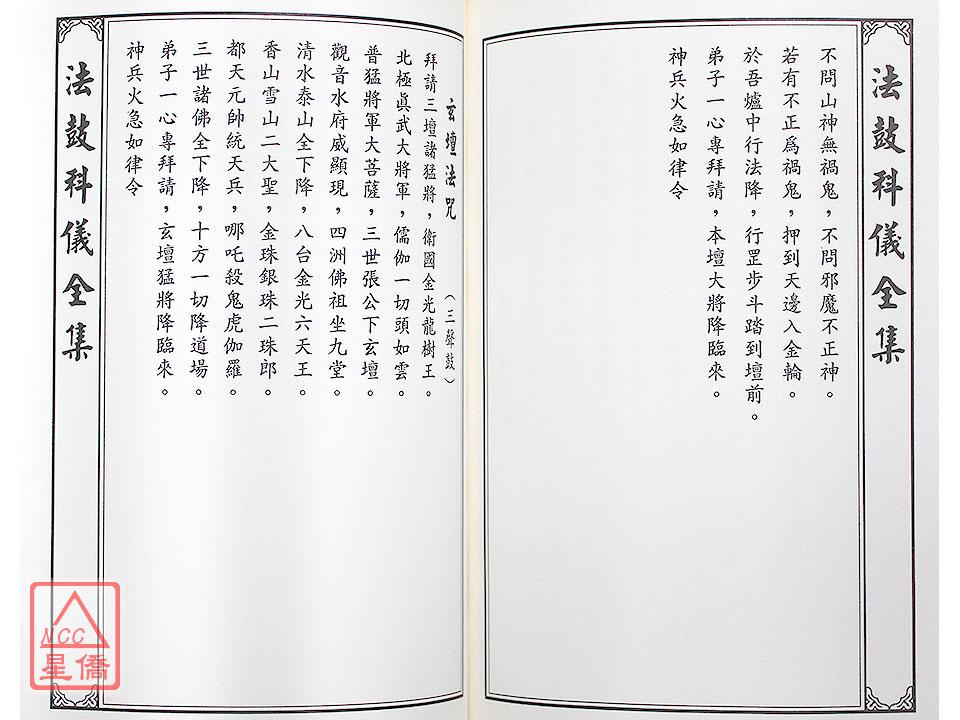 法鼓科儀全集
不問山神無禍鬼，不問邪魔不正神。
若有不正為禍鬼，押到天邊入金輪。
於吾爐中行法降，行罡步斗踏到壇前。
弟子一心專拜請，本壇大將降臨來。
神兵火急如律令
玄壇法咒（三聲鼓）
拜請三壇諸猛將，衛國金光龍樹王。
北極眞武大將軍，儒伽一切頭如雲。
普猛將軍大菩薩，三世張公下玄壇。
觀音水府威顯現，四洲佛祖坐九堂。
清水泰山全下降，八台金光六天王。
香山雪山二大聖，金珠銀珠二珠郎。
都天元帥統天兵，哪吒殺鬼虎伽羅。
三世諸佛全下降，十方一切降道場。
弟子一心專拜請，玄壇猛將降臨來。
神兵火急如律令
法鼓科儀全集
NCC
星僑